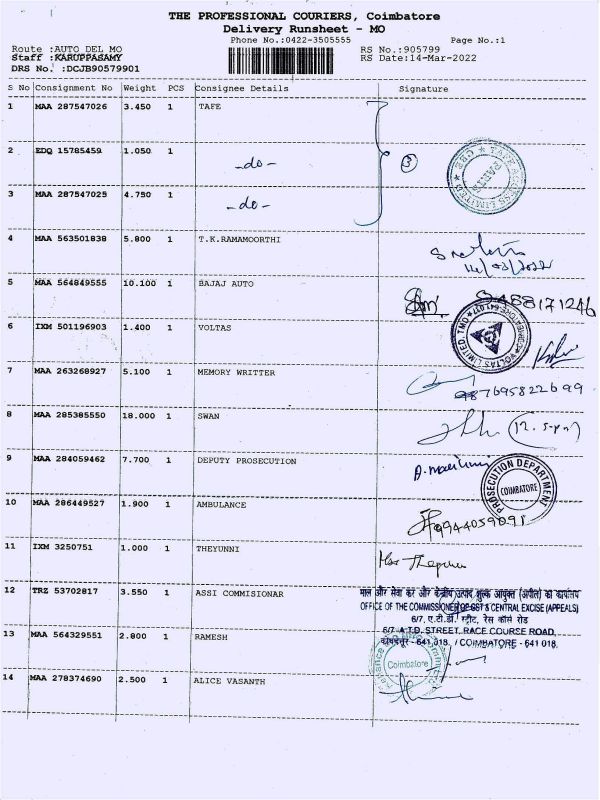 THE PROFESSIONAL COURIERS, Coimbatore
Delivery Runsheet - MO
Phone No.:0422-3505555 Page No.:1
Route :AUTO DEL MO RS No.:905799
Staff :KARUPPASAMY RS Date:14-Mar-2022
DRS No. :DCJB90579901
S No Consignment No Weight PCS Consignee Details Signature
1 MAA 287547026 3.450 1 TAFE
2 EDQ 15785459 1.050 1 -do- 3
3 MAA 287547025 4.750 1 -do-
4 MAA 563501838 5.800 1 T.K.RAMAMOORTHI
14/03/2022
5 MAA 564849555 10.100 1 BAJAJ AUTO 9488171246
6 IXM 501196903 1.400 1 VOLTAS
VOLTAS LIMITED, TMO COIMBATORE-641 011
7 MAA 263268927 5.100 1 MEMORY WRITTER
987695822699
8 MAA 285385550 18.000 1 SWAN
9 MAA 284059462 7.700 1 DEPUTY PROSECUTION
PROSECUTION DEPARTMENT
COIMBATORE
10 MAA 286449527 1.900 1 AMBULANCE
9944059091
11 IXM 3250751 1.000 1 THEYUNNI
12 TRZ 53702817 3.550 1 ASSI COMMISIONAR
माल और सेवा कर और केन्द्रीय उत्पाद शुल्क आयुक्त (अपील) का कार्यालय
OFFICE OF THE COMMISSIONER OF GST & CENTRAL EXCISE (APPEALS)
6/7, ए.टी.डी. स्ट्रीट, रेस कोर्स रोड
6/7 A.T.D. STREET, RACE COURSE ROAD,
कोयम्बत्तूर - 641 018. / COIMBATORE - 641 018.
13 MAA 564329551 2.800 1 RAMESH
Coimbatore
14 MAA 278374690 2.500 1 ALICE VASANTH